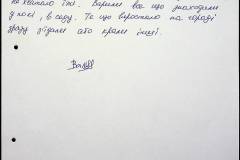 не хватало їжі. Варили все що знаходили
у полі, в саду. Те що виростало на городі
зразу з'їдали або крали інші.